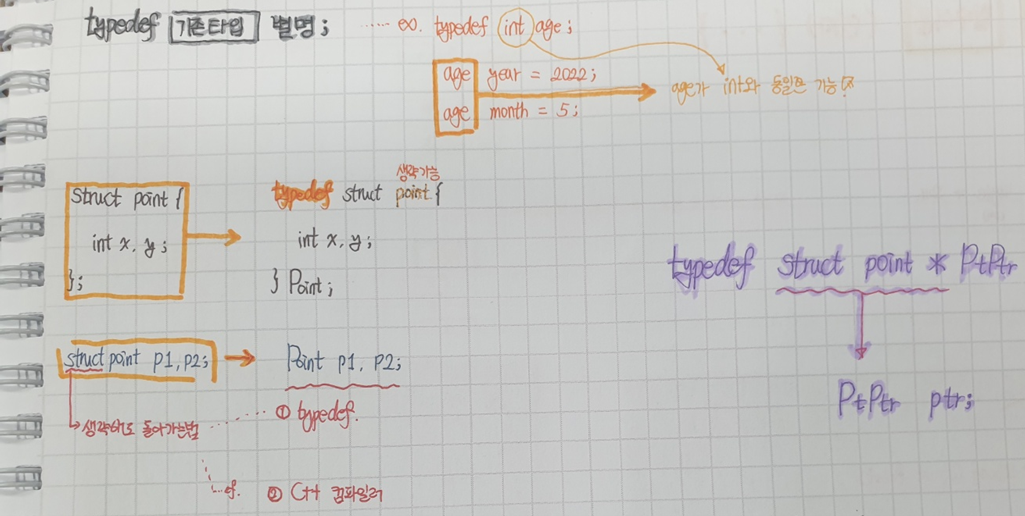 typedef 기존타입 별명; ····· ex. typedef int age;
age year = 2022;
age month = 5;
age가 int와 동일한 기능
struct point {
int x, y;
};
생략가능
typedef struct point {
int x, y;
} Point;
typedef struct point * PtPtr
PtPtr ptr;
struct point p1, p2;
Point p1, p2;
생략해도 돌아가는법 ····· ① typedef.
cf. ② C++ 컴파일러